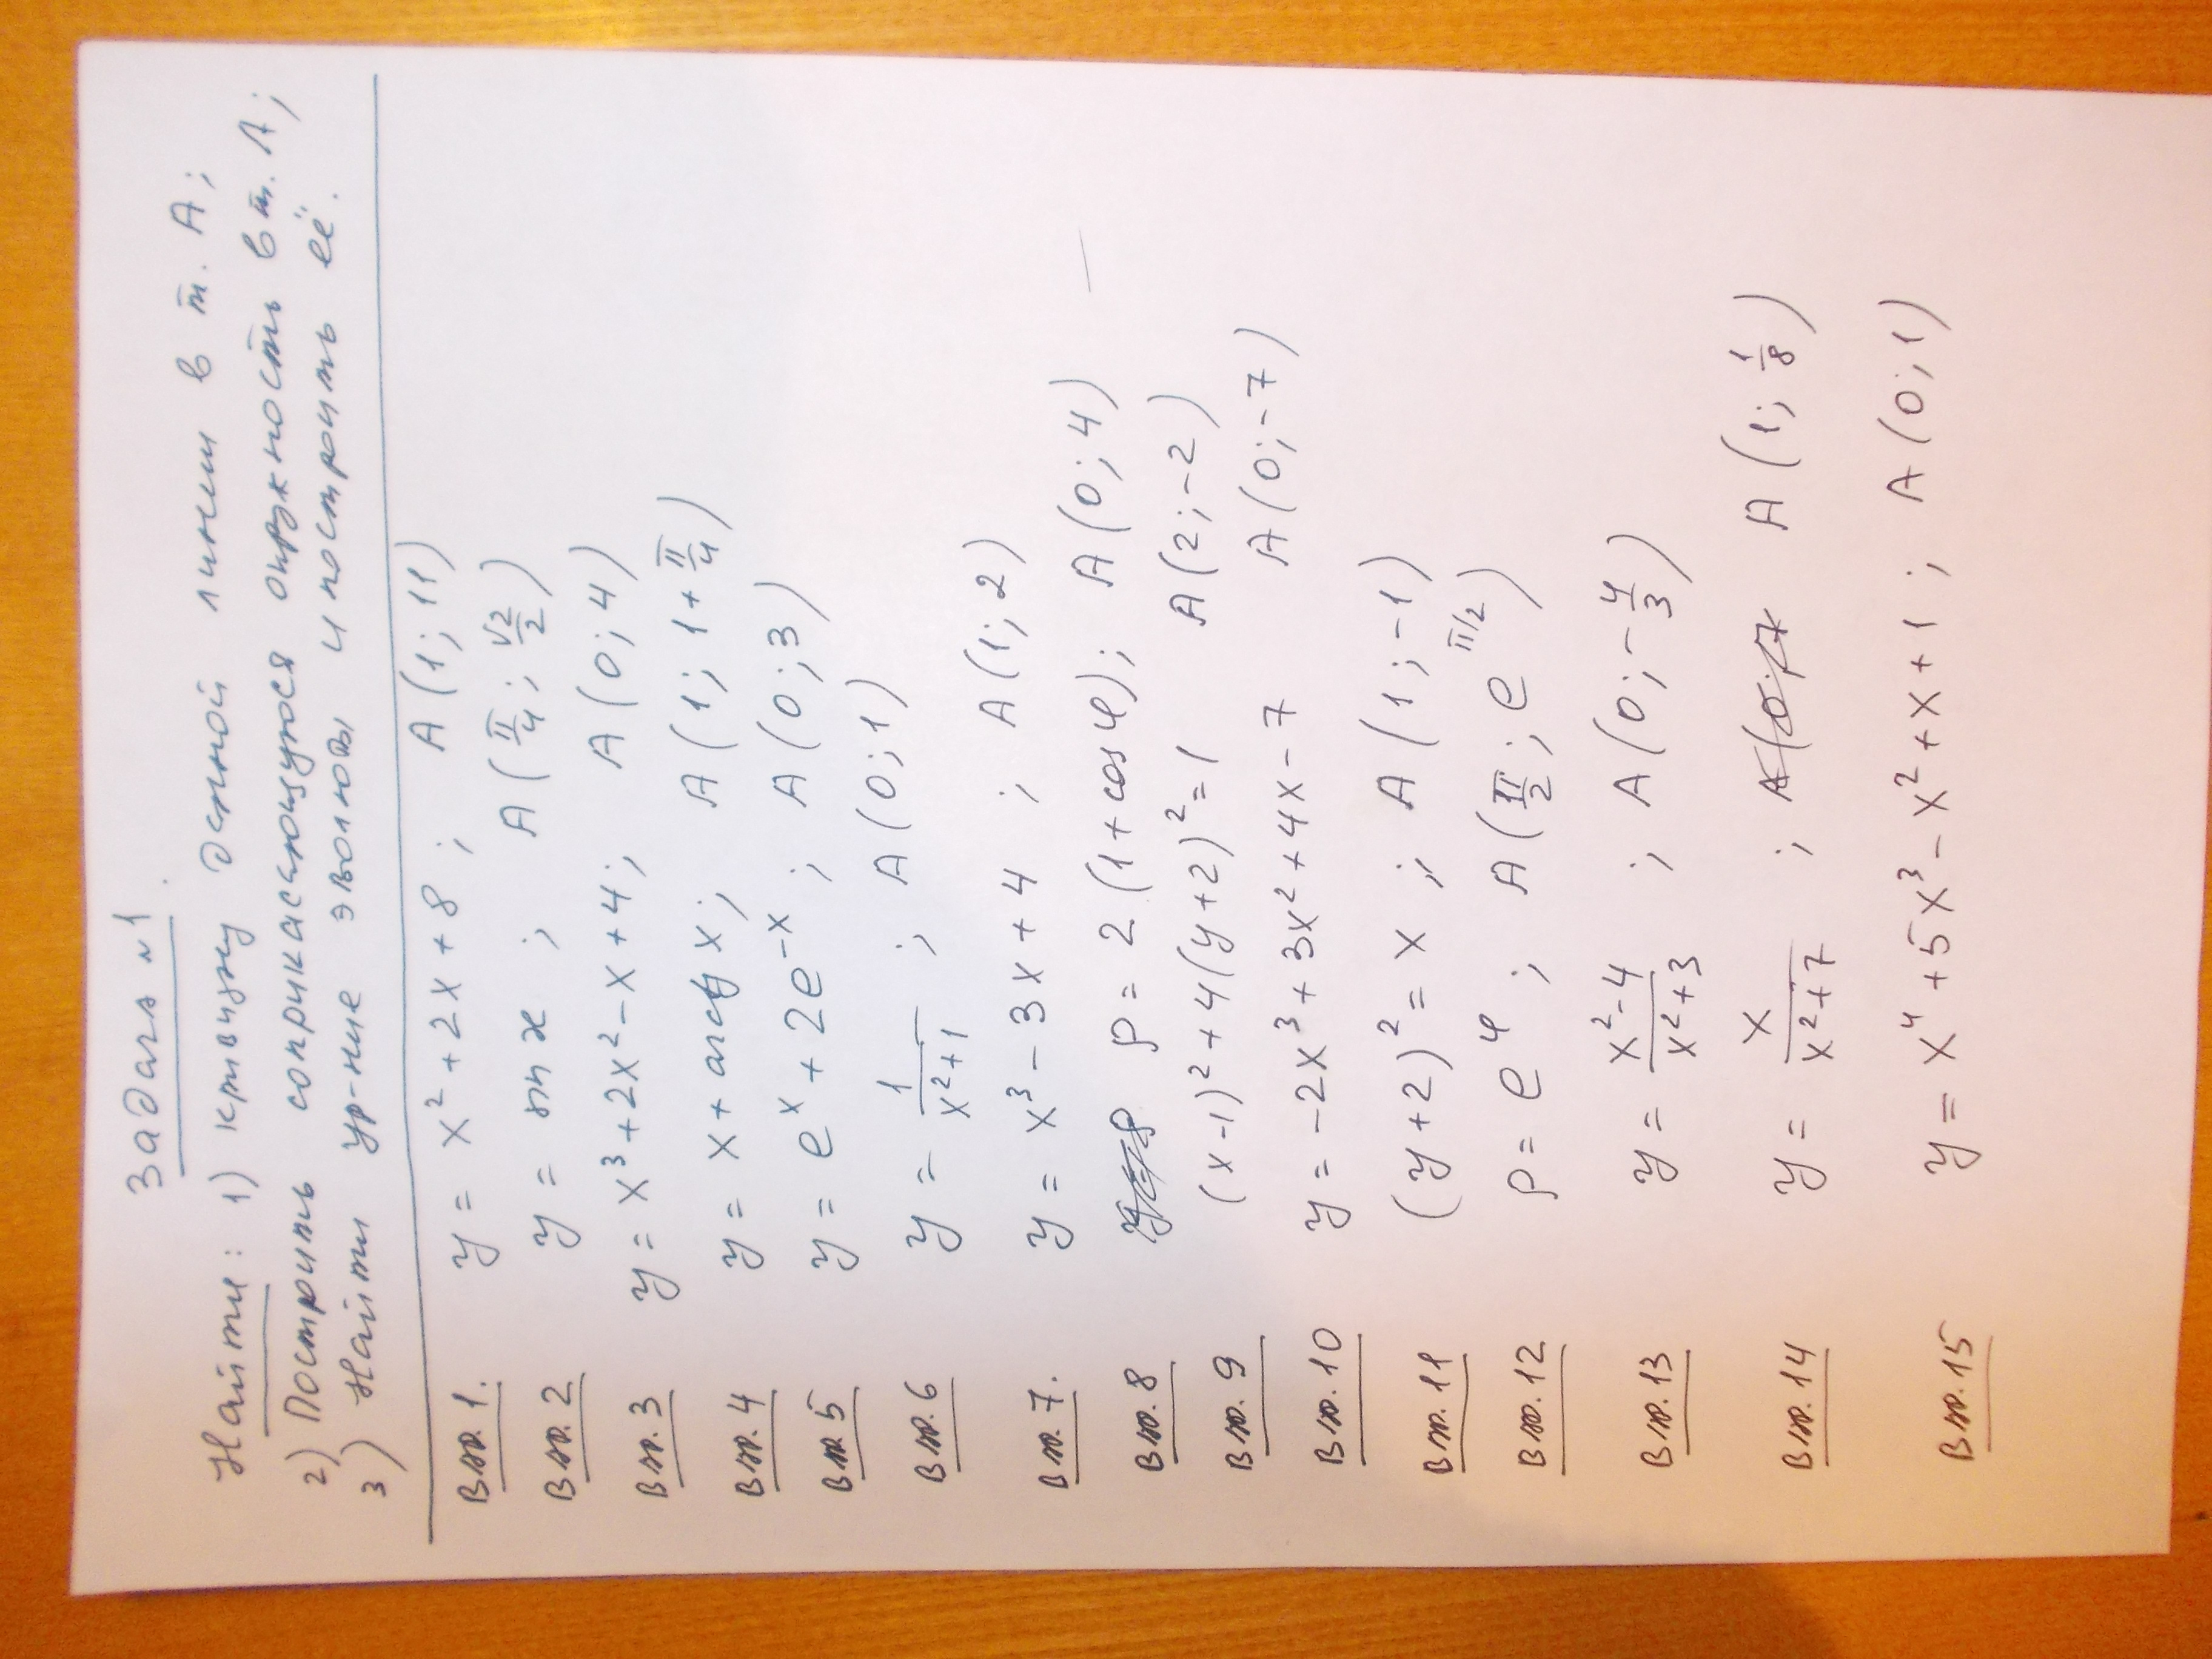 Задача №1.
Найти: 1) кривизну данной линии в т. А;
2) Построить соприкасающуюся окружность в т. А;
3) Найти ур-ние эволюты и построить её.
Вар. 1. y = x² + 2x + 8; A(1; 11)
Вар. 2 y = sin x; A(π/4; √2/2)
Вар. 3 y = x³ + 2x² - x + 4; A(0; 4)
Вар. 4 y = x + arctg x; A(1; 1 + π/4)
Вар. 5 y = eˣ + 2e⁻ˣ; A(0; 3)
Вар. 6 y = 1/(x² + 1); A(0; 1)
Вар. 7. y = x³ - 3x + 4; A(1; 2)
Вар. 8 ρ = 2(1 + cos φ); A(0; 4)
Вар. 9 (x - 1)² + 4(y + 2)² = 1 A(2; -2)
Вар. 10 y = -2x³ + 3x² + 4x - 7 A(0; -7)
Вар. 11 (y + 2)² = x; A(1; -1)
Вар. 12 ρ = e^φ; A(π/2; e^(π/2))
Вар. 13 y = (x² - 4)/(x² + 3); A(0; -4/3)
Вар. 14 y = x/(x² + 7); A(1; 1/8)
Вар. 15 y = x⁴ + 5x³ - x² + x + 1; A(0; 1)